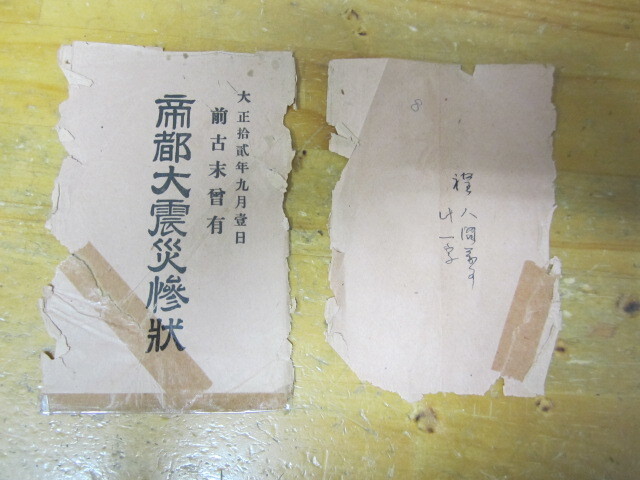 大正拾貳年九月壹日
前古末曾有
帝都大震災慘狀
8